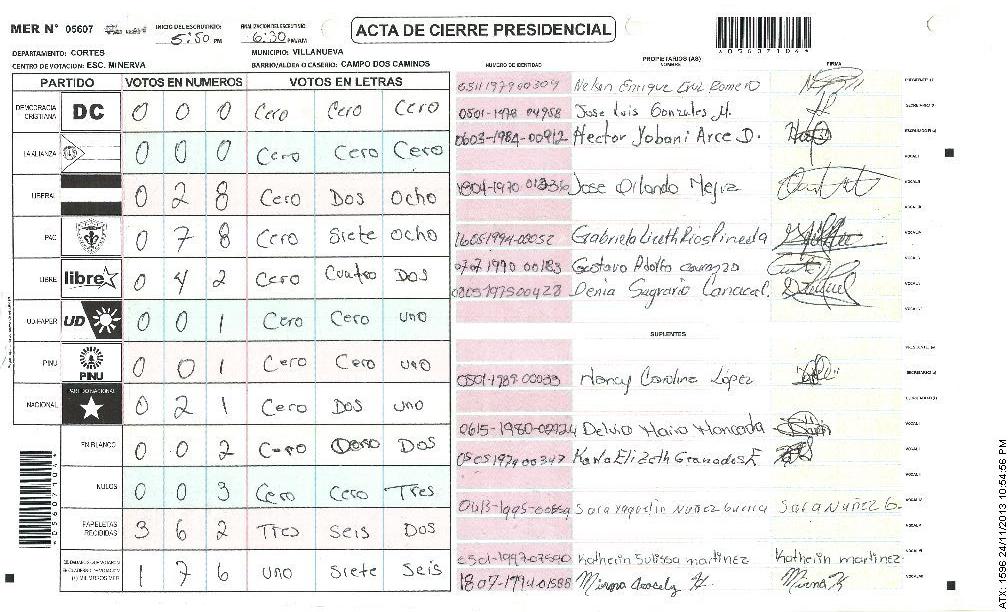 MER N° 05607
INICIO DEL ESCRUTINIO
5:50 PM
FINALIZACION DEL ESCRUTINIO
6:30 PM/AM
ACTA DE CIERRE PRESIDENCIAL
A056071044
DEPARTAMENTO: CORTES
MUNICIPIO: VILLANUEVA
CENTRO DE VOTACION: ESC. MINERVA
BARRIO/ALDEA O CASERIO: CAMPO DOS CAMINOS
PARTIDO VOTOS EN NUMEROS VOTOS EN LETRAS
DEMOCRACIA CRISTIANA DC 0 0 0 Cero Cero Cero
LA ALIANZA 0 0 0 Cero Cero Cero
LIBERAL 0 2 8 Cero Dos Ocho
PAC 0 7 8 Cero Siete Ocho
LIBRE libre 0 4 2 Cero Cuatro Dos
UD-FAPER UD 0 0 1 Cero Cero uno
PINU PINU 0 0 1 Cero Cero uno
NACIONAL PARTIDO NACIONAL 0 2 1 Cero Dos uno
EN BLANCO 0 0 2 Cero Cero Dos
NULOS 0 0 3 Cero Cero Tres
PAPELETAS RECIBIDAS 3 6 2 Tres Seis Dos
1 7 6 uno Siete Seis
PROPIETARIOS (AS)
NUMERO DE IDENTIDAD NOMBRE FIRMA
0511197900309 Nelson Enrique Cruz Romero
0501-1978 04958 Jose Luis Gonzales M.
0603-1984-00912 Hector Yobani Arce D.
Jose Orlando Mejia
16051994-00052 Gabriela Lizeth Rios Pineda
0707 1970 00183 Gustavo Adolfo
0805197500428 Denia Sagrario
SUPLENTES
0501-1989-00033 Nancy Carolina López
0615-1980- Delvin
0505197400347 Karla Elizeth Granados F.
Sara Yaquelin Nuñez Sara Nuñez G.
Katherin Sulissa martinez Katherin martinez
1807-1994-01588 Mirna Aracely H. Mirna H
A056071044
ATX: 1596 24/11/2013 10:54:56 PM